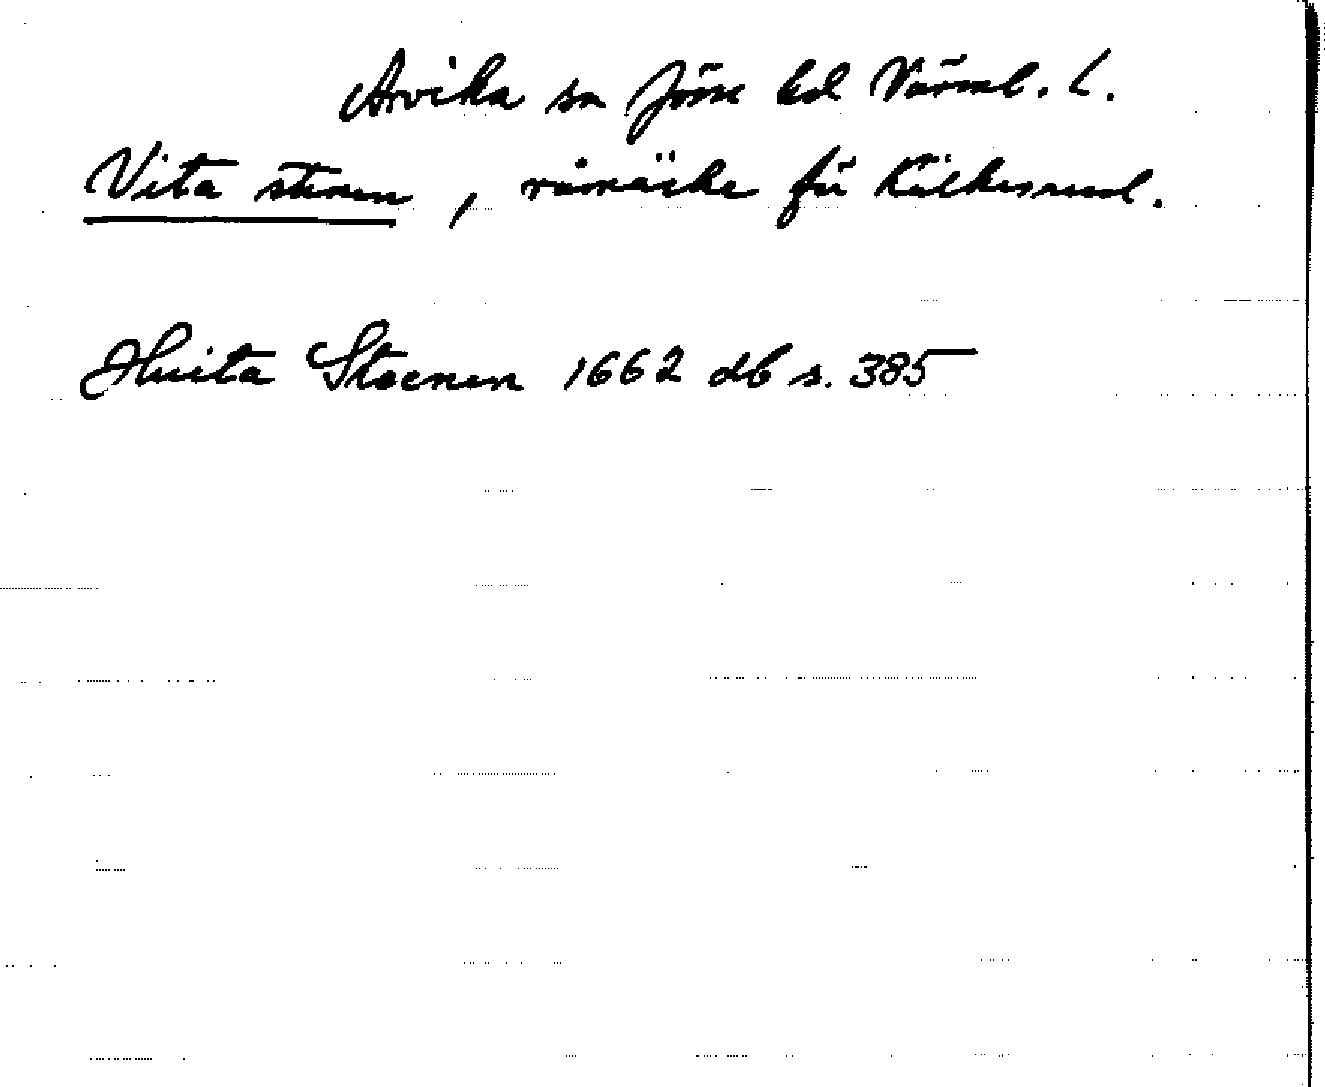 Arvika sn Jösse hd Värml. l.
Vita stenen, råmärke för Kälkesrud.
Huita Steenen 1662 db s. 385